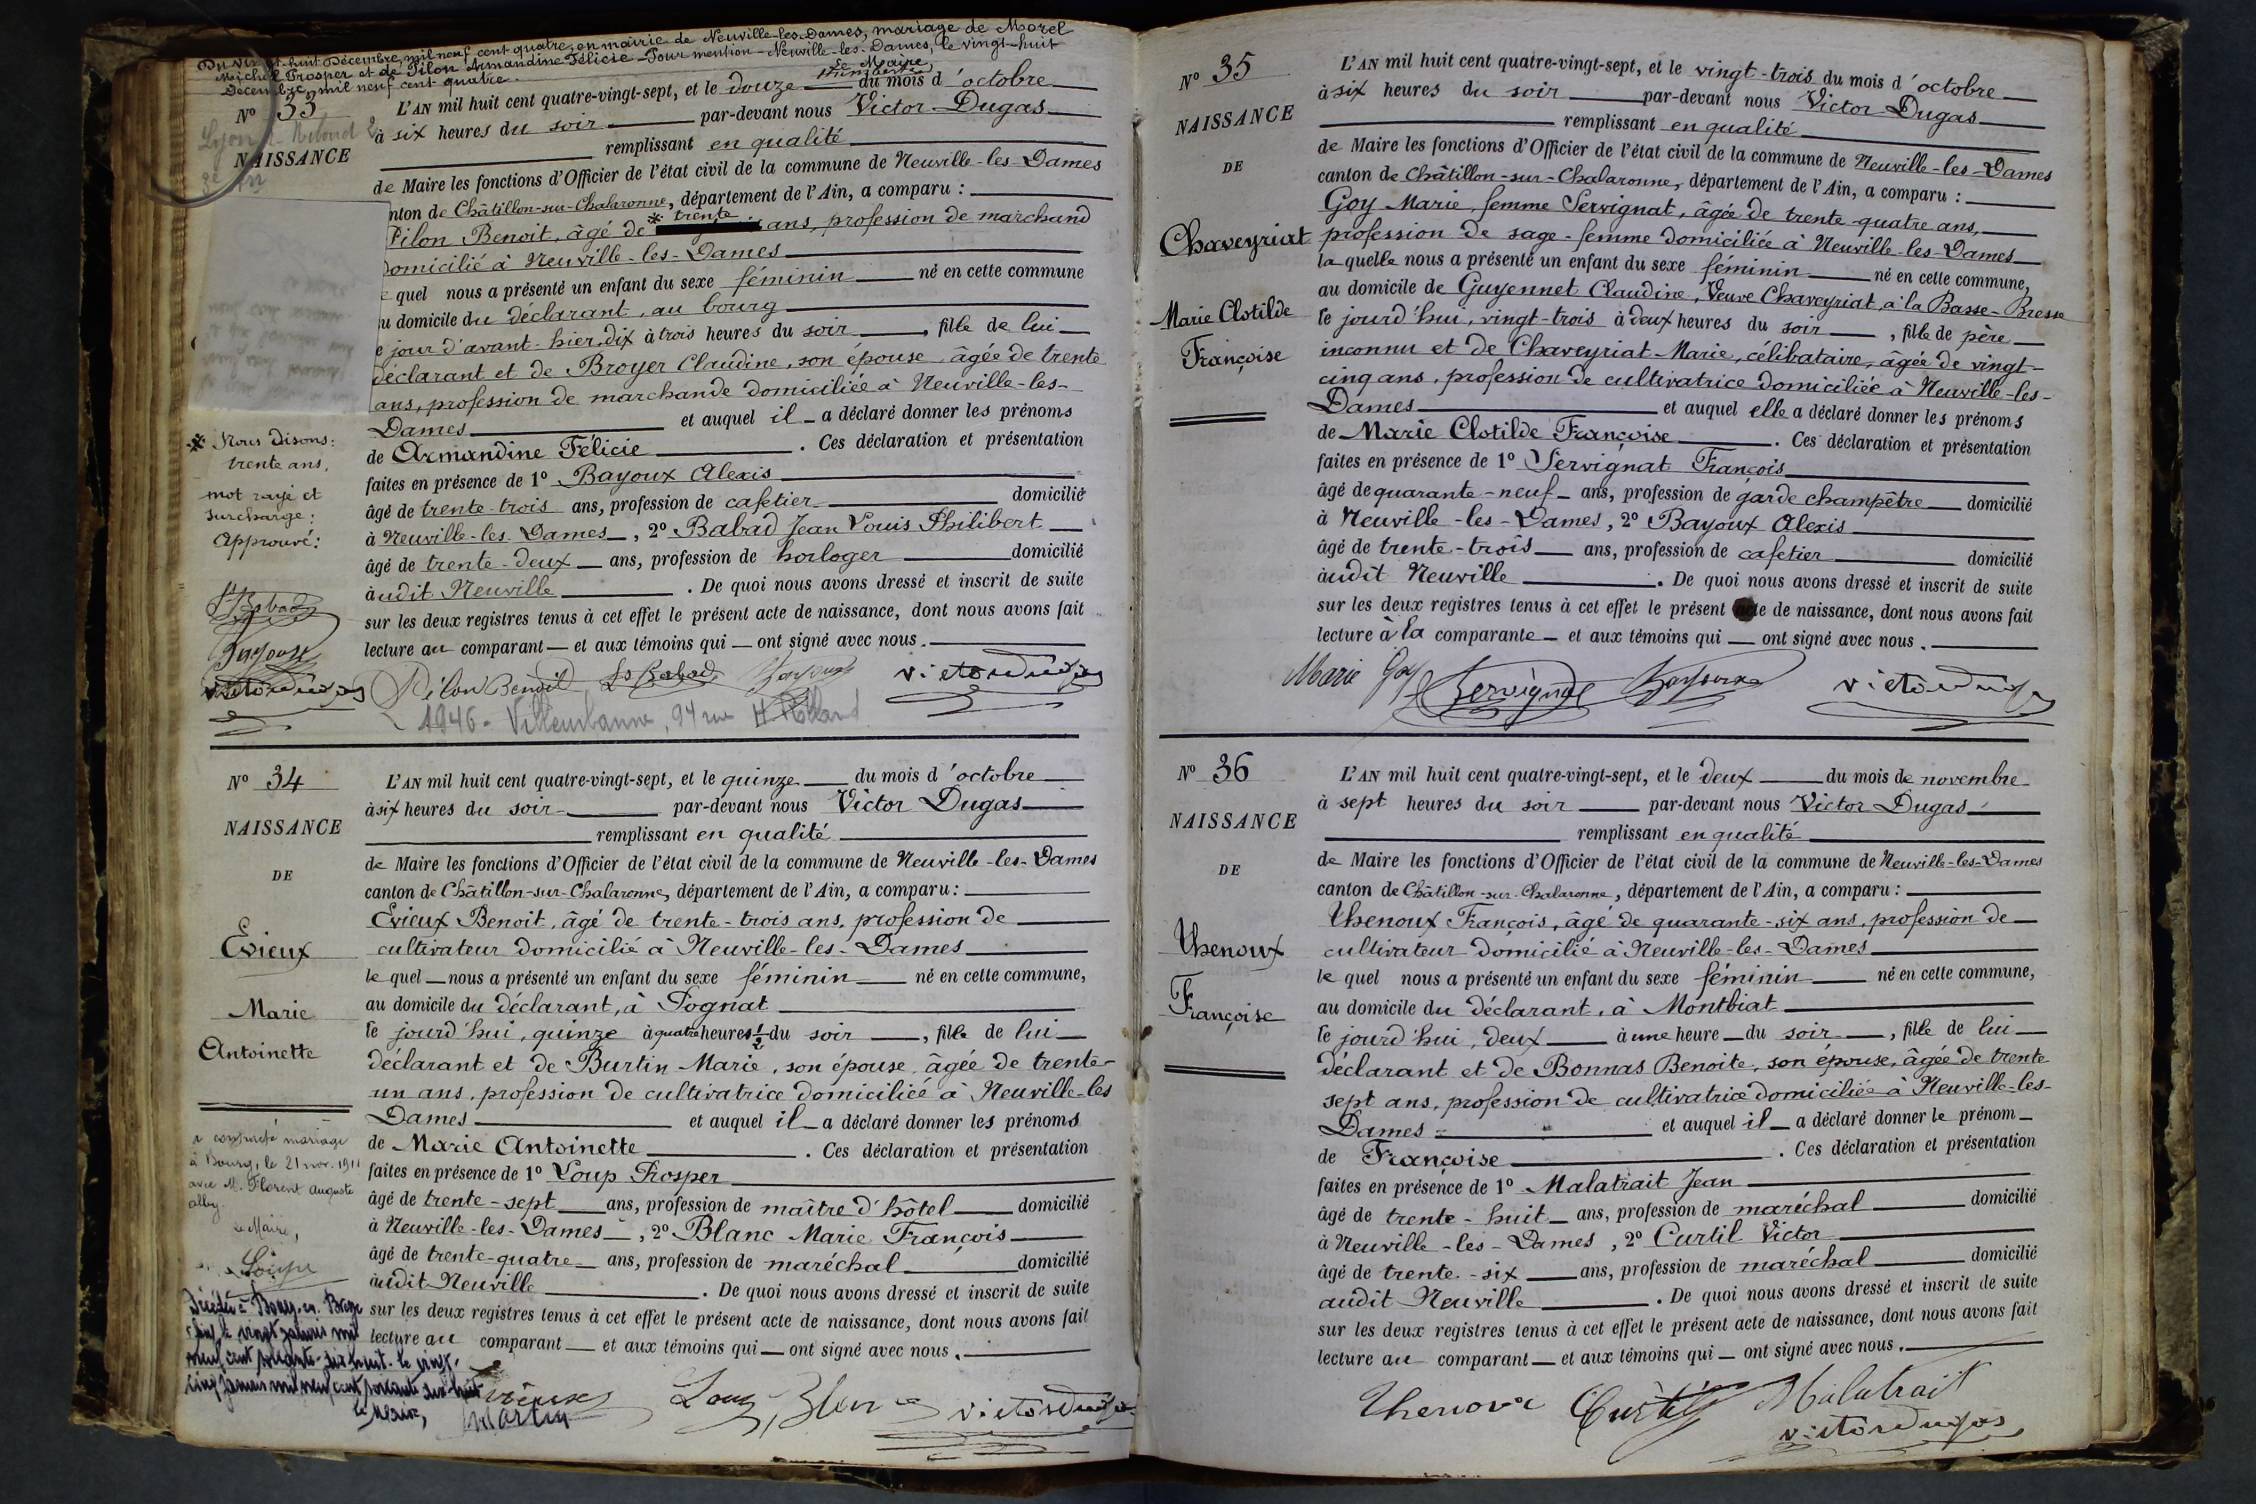 Du vingt-huit Décembre, mil neuf cent quatre, en mairie de Neuville-les-Dames, mariage de Morel
Michel Prosper et de Pilon Armandine Félicie - Pour mention - Neuville-les-Dames, le vingt-huit
Décembre, mil neuf cent quatre.
Le Maire,
N° 33
Lyon
NAISSANCE
L'AN mil huit cent quatre-vingt-sept, et le douze du mois d'octobre
à six heures du soir par-devant nous Victor Dugas
remplissant en qualité
de Maire les fonctions d'Officier de l'état civil de la commune de Neuville-les-Dames
nton de Châtillon-sur-Chalaronne, département de l'Ain, a comparu :
Pilon Benoit, âgé de * trente ans, profession de marchand
domicilié à Neuville-les-Dames
quel nous a présenté un enfant du sexe féminin né en cette commune
u domicile du déclarant, au bourg
e jour d'avant-hier, dix à trois heures du soir, fille de lui
déclarant et de Broyer Claudine, son épouse, âgée de trente
ans, profession de marchande domiciliée à Neuville-les-
Dames et auquel il a déclaré donner les prénoms
de Armandine Félicie. Ces déclaration et présentation
faites en présence de 1° Bayoux Alexis
âgé de trente-trois ans, profession de cafetier domicilié
à Neuville-les-Dames, 2° Babad Jean Louis Philibert
âgé de trente-deux ans, profession de horloger domicilié
audit Neuville. De quoi nous avons dressé et inscrit de suite
sur les deux registres tenus à cet effet le présent acte de naissance, dont nous avons fait
lecture au comparant et aux témoins qui ont signé avec nous.
* Nous disons:
trente ans,
mot rayé et
surchargé:
Approuvé:
Ls Babad
Bayoux
Victor Dugas
Pilon Benoit Ls Babad Bayoux Victor Dugas
1946 - Villeurbanne, 94 rue H. Rolland
N° 34
NAISSANCE
DE
Evieux
Marie
Antoinette
L'AN mil huit cent quatre-vingt-sept, et le quinze du mois d'octobre
à six heures du soir par-devant nous Victor Dugas
remplissant en qualité
de Maire les fonctions d'Officier de l'état civil de la commune de Neuville-les-Dames
canton de Châtillon-sur-Chalaronne, département de l'Ain, a comparu :
Evieux Benoit, âgé de trente-trois ans, profession de
cultivateur domicilié à Neuville-les-Dames
le quel nous a présenté un enfant du sexe féminin né en cette commune,
au domicile du déclarant, à Pognat
le jourd'hui, quinze à quatre heures 1/2 du soir, fille de lui
déclarant et de Burtin Marie, son épouse, âgée de trente-
un ans, profession de cultivatrice domiciliée à Neuville-les
Dames et auquel il a déclaré donner les prénoms
de Marie Antoinette. Ces déclaration et présentation
faites en présence de 1° Loup Prosper
âgé de trente-sept ans, profession de maître d'hôtel domicilié
à Neuville-les-Dames, 2° Blanc Marie François
âgé de trente-quatre ans, profession de maréchal domicilié
audit Neuville. De quoi nous avons dressé et inscrit de suite
sur les deux registres tenus à cet effet le présent acte de naissance, dont nous avons fait
lecture au comparant et aux témoins qui ont signé avec nous.
a contracté mariage
à Bourg, le 21 nov. 1911
avec M. Florent Auguste
Le Maire,
Décédée à Bourg-en-Bresse
mil
neuf cent soixante-dix huit. le vingt-
cinq janvier mil neuf cent soixante dix-huit
Le Maire, Martin
Evieux Loup Blanc Victor Dugas
N° 35
NAISSANCE
DE
Chaveyriat
Marie Clotilde
Françoise
L'AN mil huit cent quatre-vingt-sept, et le vingt-trois du mois d'octobre
à six heures du soir par-devant nous Victor Dugas
remplissant en qualité
de Maire les fonctions d'Officier de l'état civil de la commune de Neuville-les-Dames
canton de Châtillon-sur-Chalaronne, département de l'Ain, a comparu :
Goy Marie, femme Servignat, âgée de trente-quatre ans,
profession de sage-femme domiciliée à Neuville-les-Dames
la quelle nous a présenté un enfant du sexe féminin né en cette commune,
au domicile de Guyennet Claudine, Veuve Chaveyriat, à la Basse-Bresse
le jourd'hui, vingt-trois à deux heures du soir, fille de père
inconnu et de Chaveyriat Marie, célibataire, âgée de vingt-
cinq ans, profession de cultivatrice domiciliée à Neuville-les-
Dames et auquel elle a déclaré donner les prénoms
de Marie Clotilde Françoise. Ces déclaration et présentation
faites en présence de 1° Servignat François
âgé de quarante-neuf ans, profession de garde champêtre domicilié
à Neuville-les-Dames, 2° Bayoux Alexis
âgé de trente-trois ans, profession de cafetier domicilié
audit Neuville. De quoi nous avons dressé et inscrit de suite
sur les deux registres tenus à cet effet le présent acte de naissance, dont nous avons fait
lecture à la comparante et aux témoins qui ont signé avec nous.
Marie Goy Servignat Bayoux Victor Dugas
N° 36
NAISSANCE
DE
Thenoux
Françoise
L'AN mil huit cent quatre-vingt-sept, et le deux du mois de novembre
à sept heures du soir par-devant nous Victor Dugas
remplissant en qualité
de Maire les fonctions d'Officier de l'état civil de la commune de Neuville-les-Dames
canton de Châtillon-sur-Chalaronne, département de l'Ain, a comparu :
Thenoux François, âgé de quarante-six ans, profession de
cultivateur domicilié à Neuville-les-Dames
le quel nous a présenté un enfant du sexe féminin né en cette commune,
au domicile du déclarant, à Montbiat
le jourd'hui, deux à une heure du soir, fille de lui
déclarant et de Bonnas Benoite, son épouse, âgée de trente
sept ans, profession de cultivatrice domiciliée à Neuville-les-
Dames et auquel il a déclaré donner le prénom
de Françoise. Ces déclaration et présentation
faites en présence de 1° Malatrait Jean
âgé de trente-huit ans, profession de maréchal domicilié
à Neuville-les-Dames, 2° Curtil Victor
âgé de trente-six ans, profession de maréchal domicilié
audit Neuville. De quoi nous avons dressé et inscrit de suite
sur les deux registres tenus à cet effet le présent acte de naissance, dont nous avons fait
lecture au comparant et aux témoins qui ont signé avec nous.
Thenoux Curtil Malatrait
Victor Dugas